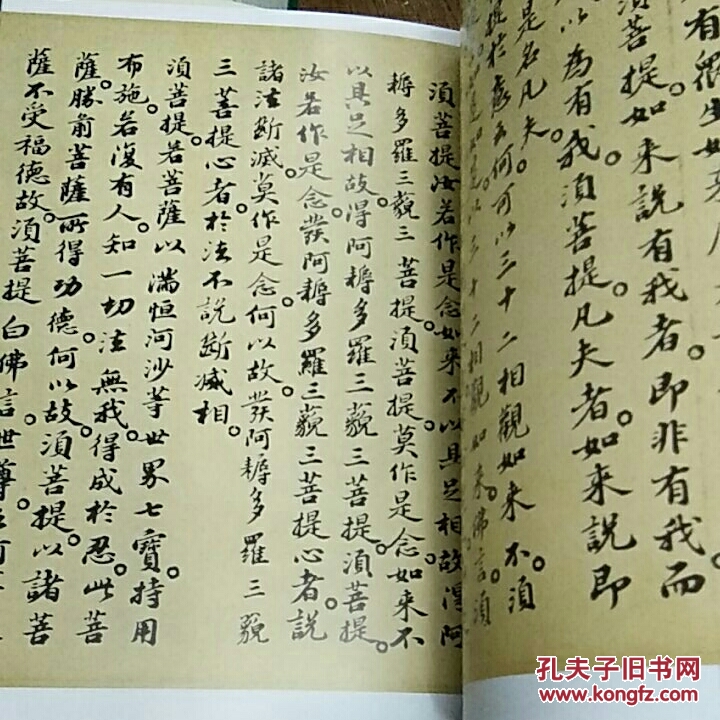 有眾生如
須菩提。如来說有我者。即非有我。而
以為有我。須菩提。凡夫者。如来說即
是名凡夫。
提於意云何可以三十二相觀如来不。須
如是如是以三十二相觀如来。佛言。須
須菩提汝若作是念如来不以具足相故得阿
耨多羅三藐三菩提。須菩提。莫作是念。如来不
以具足相故。得阿耨多羅三藐三菩提。須菩提。
汝若作是念。發阿耨多羅三藐三菩提心者。說
諸法斷滅。莫作是念。何以故。發阿耨多羅三藐
三菩提心者。於法不說斷滅相。
須菩提。若菩薩以滿恒河沙等世界七寶。持用
布施。若復有人。知一切法無我。得成於忍。此菩
薩。勝前菩薩所得功德。何以故。須菩提。以諸菩
薩不受福德故。須菩提白佛言。世尊。云何
孔夫子旧书网
www.kongfz.com